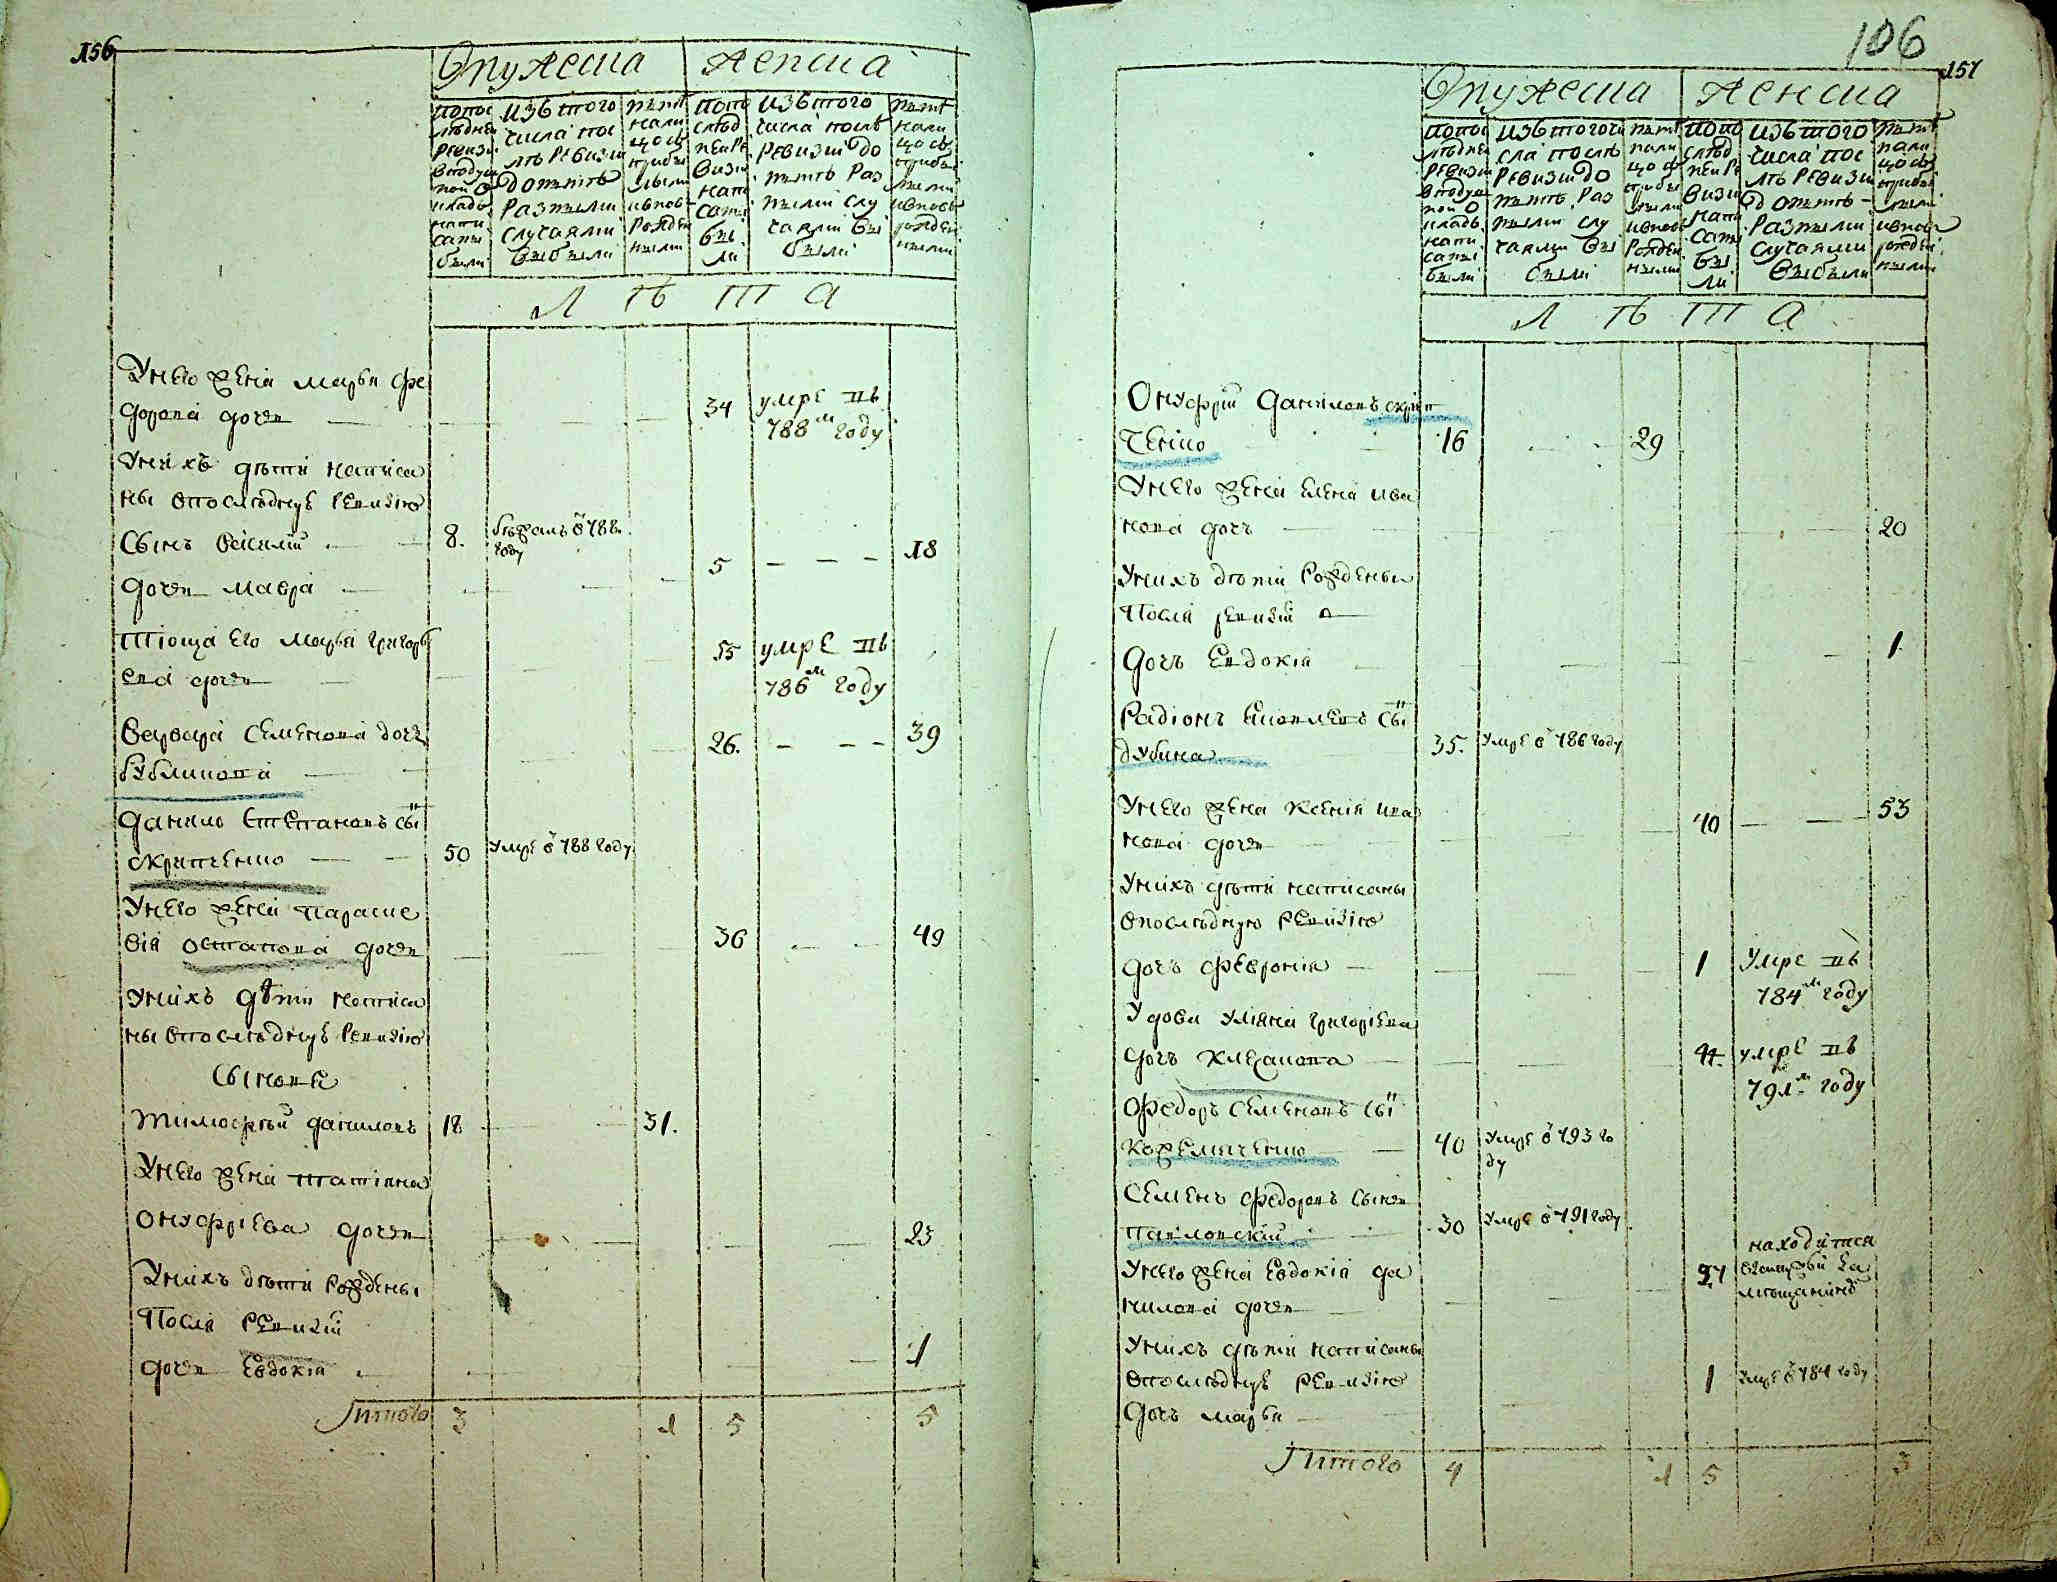 156
Мужеска
Женска
попос
лѣдней
ревизи
в подуш
ной о
кладъ
напи
саны
были
изъ того
числа пос
лѣ ревизи
до нынѣ
разными
случаями
выбыли
нынѣ
нали
цо съ
прибы
лыми
и вновь
рожден
ными
попо
слѣд
ней ре
визи
напи
саны
бы
ли
изъ того
числа послѣ
ревизи до
нынѣ раз
ными слу
чаями вы
были
нынѣ
нали
цо съ
прибы
лыми
и вновь
рожден
ными
Лѣта
У него жена марья фе
дорова дочь 34 умре въ
788м году
У нихъ дѣти написа
ны в последнуѣ ревизию
Сынъ василий 8. бѣжалъ в 788.
году
дочь мавра 5 18
Тіоща его марья григорь
ева дочь 55 умре въ
786м году
Варвара Семенова дочь 26. 39
бубликова
данило Степановъ сы
скрипченко 50 умре в 788 году
У него жена параске
вія остапова дочь 36 49
У нихъ дѣти написа
ны в последнуѣ ревизию
Сыновѣ
тимофѣй даниловъ 18 31.
У него жена татіяна
онуфріева дочь 23
У нихъ дѣти рождены
После ревизий
дочь Евдокія 1
Итого 3 1 5 5
106
157
Мужеска
Женска
попос
лѣдней
ревизи
в подуш
ной о
кладъ
напи
саны
были
изъ того чи
сла послѣ
ревизи до
нынѣ раз
ными слу
чаями вы
были
нынѣ
нали
цо съ
прибы
лыми
и вновь
рожден
ными
попо
слѣд
ней ре
визи
напи
саны
бы
ли
изъ того
числа пос
лѣ ревизи
до нынѣ
разными
случаями
выбыли
нынѣ
нали
цо съ
прибы
лыми
и вновь
рожден
ными
Лѣта
Онуфрій даниловъ скрип
ченко 16 29
У него жена елена ива
нова дочь 20
У нихъ дѣти рождены
После ревизий
дочь Евдокія 1
Радіонъ яковлевъ сы
дубина 35. умре в 786 году
У него жена ксенія ива
нова дочь 40 53
У нихъ дѣти написаны
в последнуѣ ревизию
дочь февронія 1 Умре въ
784м году
Удова уліяна григоріева
дочь 44 умре въ
791м году
Федоръ семеновъ сы
кожемяченко 40 умре в 793 го
ду
Семенъ федоровъ сынъ
павловскій 30 умре в 791 году
У него жена Евдокія да
нилова дочь 27 находится
в замужьи за
мѣщаниномъ
У нихъ дѣти написаны
в последнуѣ ревизию
дочь марья 1 умре в 784 году
Итого 4 1 5 3